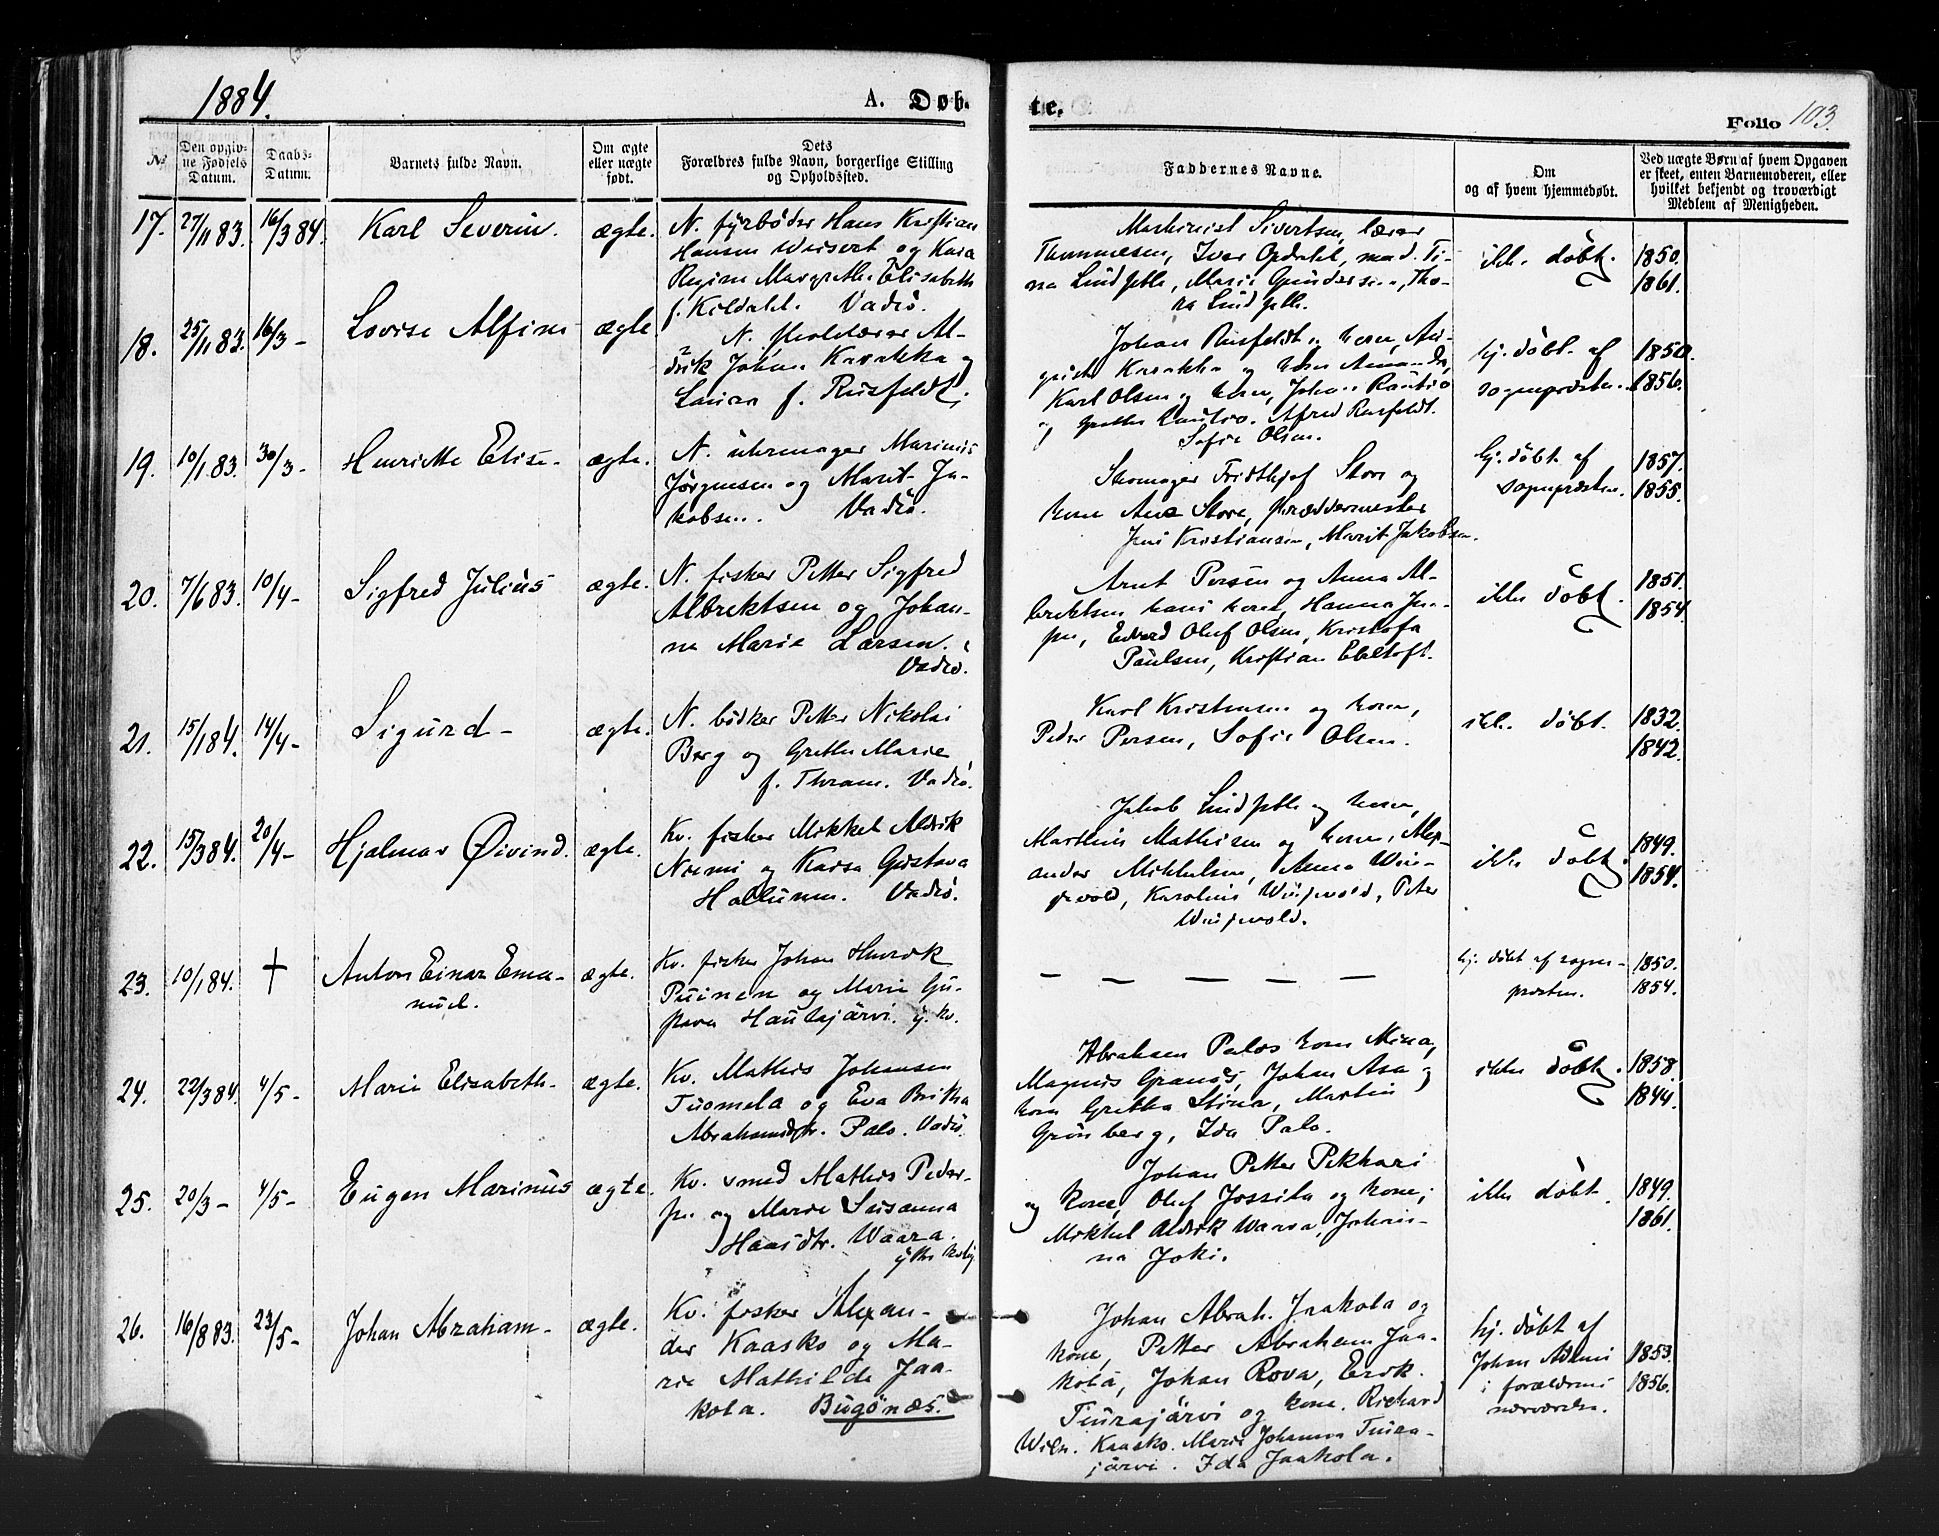 1884.
A. Døb-
te.
Folio 103.
№
Den opgiv-
ne Fødsels
Datum.
Daabs-
Datum.
Barnets fulde Navn.
Om ægte
eller uægte
født.
Dets
Forældres fulde Navn, borgerlige Stilling
og Opholdssted.
Faddernes Navne.
Om
og af hvem hjemmedøbt.
Ved uægte Børn af hvem Opgaven
er skeet, enten Barnemoderen, eller
hvilket bekjendt og troværdigt
Medlem af Menigheden.
17. 27/11 83. 16/3 84. Karl Severin. ægte.
N. fyrbøder Hans Kristian
Hansen Weisert og Kara
Regine Margrethe Elisabeth
f. Kildahl. Vadsö.
Maskinist Sivertsen, lærer
Thommesen, Ivar Opdahl, mad. Ti-
na Lindseth, Marie Gundersen, Tho-
ra Lindseth.
ikke døbt.
1850.
1861.
18. 25/11 83. 16/3 - Lovise Alfine ægte
N. skolelærer Al-
drik Johan Karakka og
Laura f. Rusfeldt.
Johan Rusfeldt og kone, Au-
gust Karakka og kone Amanda,
Karl Olsen og kone, Johan Rautio
og Grethe Rautio. Alfred Rusfeldt.
Sofie Olsen.
hj. döbt af
sognepræsten.
1850.
1856.
19. 10/1 83. 30/3 - Henriette Elise - ægte.
N. uhrmager Marinus
Jørgensen og Marit Ja-
kobsen. Vadsö.
Skomager Fridthjof Store og
kone Ane Store, skræddermester
Jens Kristiansen, Marit Jakobsen.
hj. döbt af
sognepræsten.
1857.
1855.
20. 7/6 83. 10/4 - Sigfred Julius ægte.
N. fisker Petter Sigfred
Albrektsen og Johan-
ne Marie Larsen.
Vadsö.
Arnt Persen og Anna Al-
brektsen hans kone, Hanna Jen-
sen, Edvard Oluf Olsen, Kristofa
Paulsen, Kristian Ebeltoft.
ikke döbt.
1851.
1854.
21. 15/1 84. 14/4 - Sigurd - ægte.
N. bödker Petter Nikolai
Berg og Grethe Marie
f. Thram. Vadsö.
Karl Kristensen og kone,
Peder Persen, Sofie Olsen.
ikke döbt.
1832.
1842.
22. 15/3 84. 20/4 - Hjalmar Øivind. ægte.
Kv. fisker Mikkel Aldrik
Niemi og Kaisa Gustava
Hallunen. Vadsö.
Jakob Lindseth og kone,
Marthin Mathisen og kone, Alex-
ander Mikkelsen, Anna Win-
gevold, Karoline Wingevold, Peter
Wingevold.
ikke döbt.
1849.
1854.
23. 10/1 84. † Anton Einar Ema-
nuel. ægte.
Kv. fisker Johan Henrik
Puinen og Marie Gu-
stava Hautajärvi. y. kv.
— — — — —
hj. döbt af sogne-
præsten.
1850.
1854.
24. 22/3 84. 4/5 - Marie Elisabeth - ægte.
Kv. Mathis Johansen
Tuomela og Eva Brita
Abrahamsdtr. Palo. Vadsö.
Abraham Palos kone Mina,
Magnus Granös, Johan Asa og
kone Gretha Stina, Martin
Grönberg, Ida Palo.
ikke döbt.
1858.
1844.
25. 20/3 - 4/5 - Eugen Marinus ægte.
Kv. smed Mathis Peder-
sen og Marie Susanna
Hansdtr. Waara.
ytre kvby
Johan Petter Pekkari
og kone, Oluf Jossila og kone,
Mikkel Aldrik Waara, Johan-
na Joki.
ikke döbt.
1849.
1861.
26. 16/8 83. 23/5 - Johan Abraham - ægte.
Kv. fisker Alexan-
der Kaasko og Ma-
rie Mathilde Jaa-
kola. Bugönæs.
Johan Abrah. Jaakola og
kone, Petter Abraham Jaa-
kola, Johan Rova, Erik
Tiurajärvi og kone. Richard
Wilh. Kaasko. Marie Johanna Tiura-
järvi. Ida Jaakola.
hj. döbt af
Johan Niemi
i forældrenes
nærværelse.
1853.
1856.